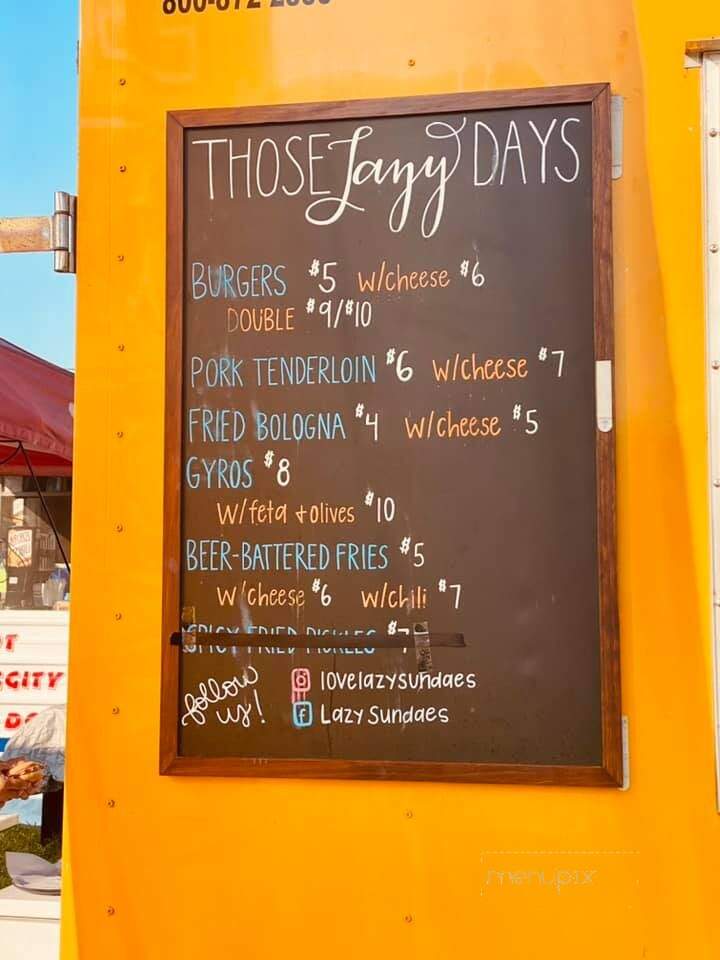 THOSE Lazy DAYS
BURGERS $5 w/cheese $6
DOUBLE $9/$10
PORK TENDERLOIN $6 w/cheese $7
FRIED BOLOGNA $4 w/cheese $5
GYROS $8
w/feta + olives $10
BEER-BATTERED FRIES $5
w/cheese $6 w/chili $7
SPICY FRIED PICKLES $7
follow us!
lovelazysundaes
Lazy Sundaes
menupix